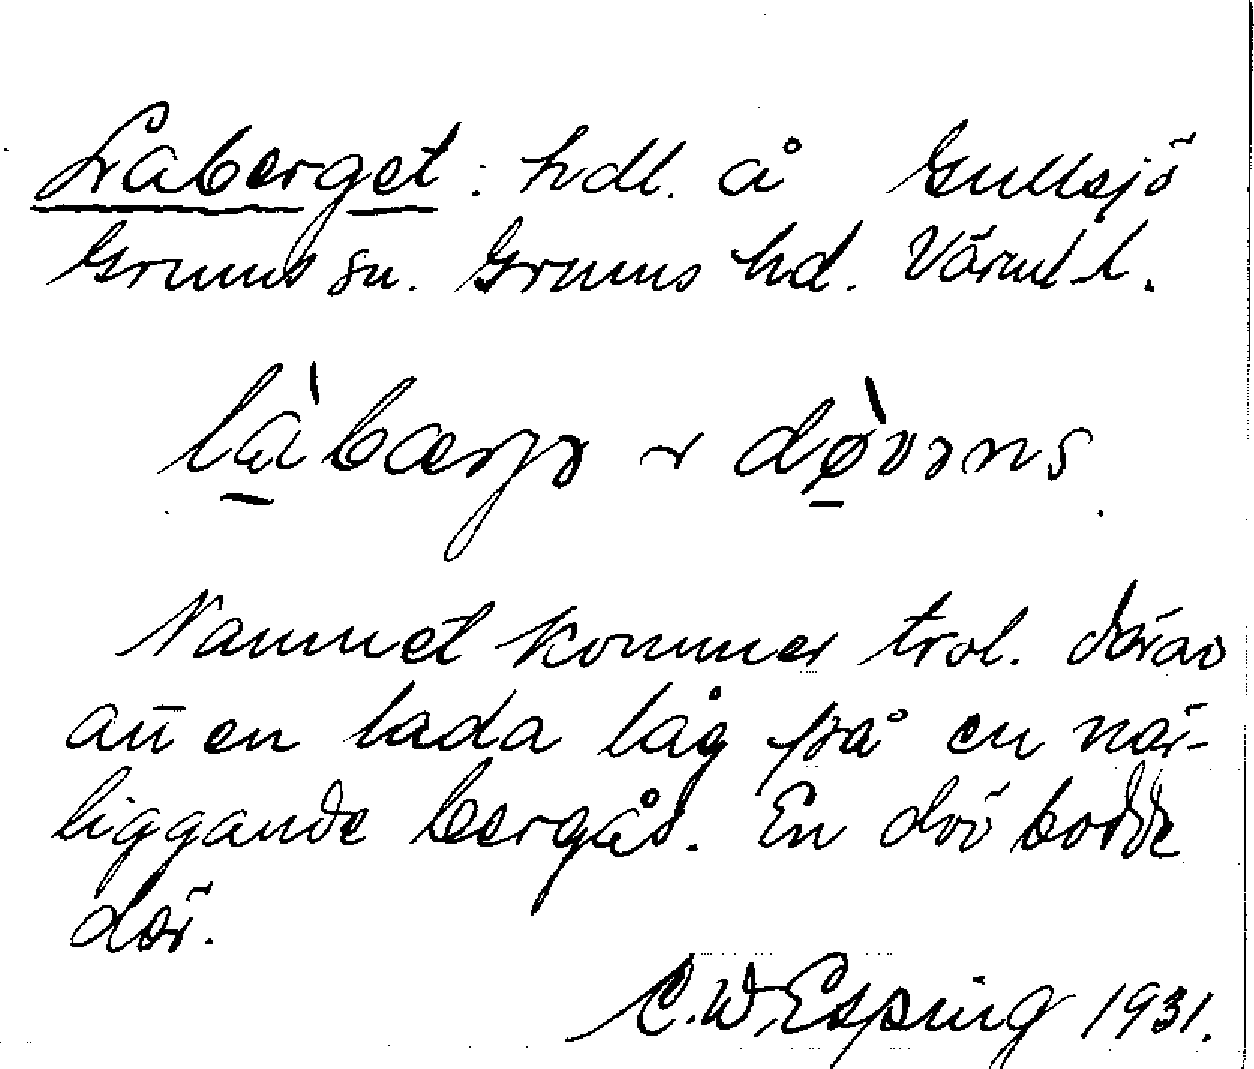 Laberget: hdl. å Gullsjö
Grums sn. Grums hd. Värml.
là bærjə ɤ dø̀vəns
Namnet kommer trol. därav
att en lada låg på en när-
liggande bergås. En döv bodde
där.
C.W. Esping 1931.